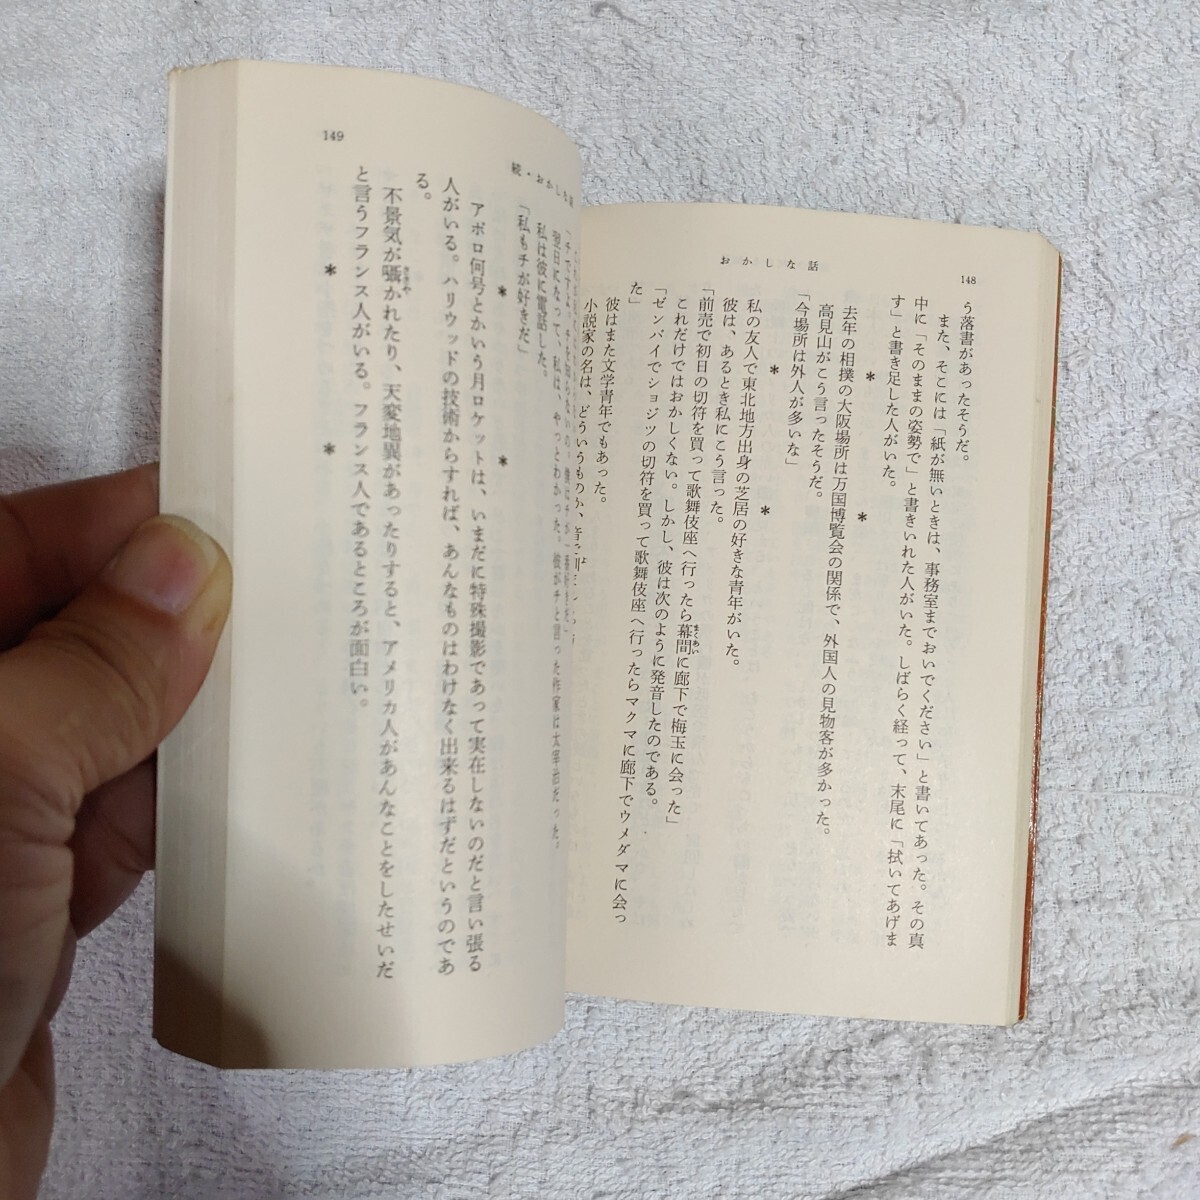 148
おかしな話
う落書があったそうだ。
また、そこには「紙が無いときは、事務室までおいでください」と書いてあった。その真
中に「そのままの姿勢で」と書きいれた人がいた。しばらく経って、末尾に「拭いてあげま
す」と書き足した人がいた。
＊ ＊
去年の相撲の大阪場所は万国博覧会の関係で、外国人の見物客が多かった。
高見山がこう言ったそうだ。
「今場所は外人が多いな」
＊ ＊
私の友人で東北地方出身の芝居の好きな青年がいた。
彼は、あるとき私にこう言った。
「前売で初日の切符を買って歌舞伎座へ行ったら幕間に廊下で梅玉に会った」
まくあい
これだけではおかしくない。しかし、彼は次のように発音したのである。
「ゼンバイでショジツの切符を買って歌舞伎座へ行ったらマクマに廊下でウメダマに会っ
た」
彼はまた文学青年でもあった。
小説家の名は、どういうものか、音で
149
続・おかしな話
「チですよ。チを知らないの。僕はチが一番好きだ」
翌日になって、私は、やっとわかった。彼がチと言った作家は太宰治だった。
私は彼に電話した。
「私もチが好きだ」
＊ ＊
アポロ何号とかいう月ロケットは、いまだに特殊撮影であって実在しないのだと言い張る
人がいる。ハリウッドの技術からすれば、あんなものはわけなく出来るはずだというのであ
る。
不景気が囁かれたり、天変地異があったりすると、アメリカ人があんなことをしたせいだ
ささや
と言うフランス人がいる。フランス人であるところが面白い。
＊ ＊